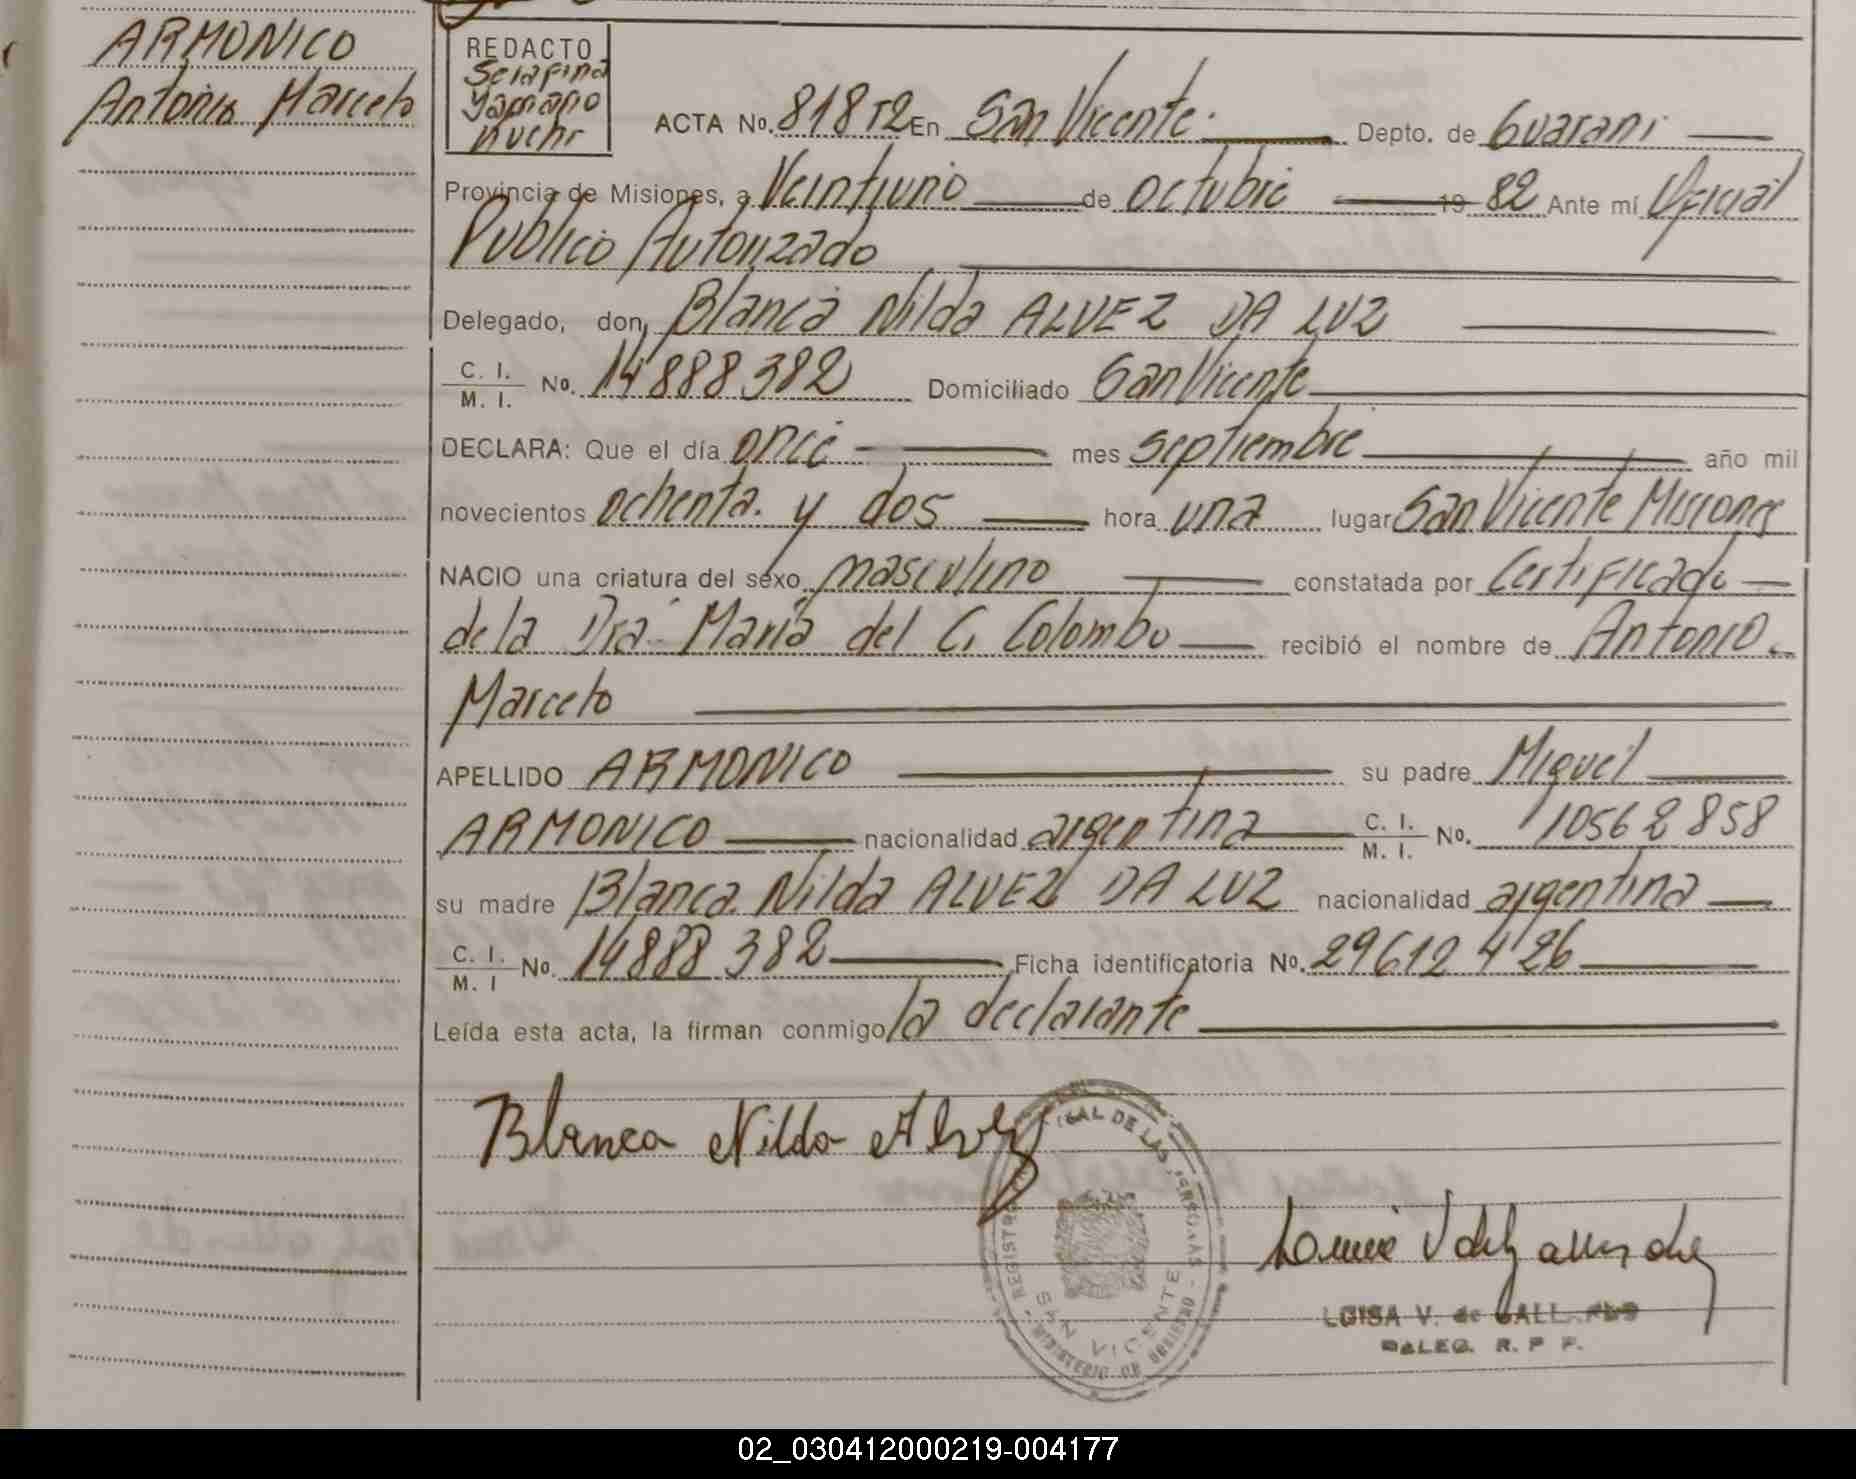 ARMONICO
Antonio Marcelo
REDACTO
Serafina
Yamano
Kuchr
ACTA No. 818 T2 En San Vicente. Depto. de Guarani
Provincia de Misiones, a Veintiuno de octubre 19 82 Ante mí Oficial
Publico Autorizado
Delegado, don, Blanca Nilda ALVEZ DA LUZ
C. I.
M. I. No. 14888382 Domiciliado San Vicente
DECLARA: Que el día once mes septiembre año mil
novecientos ochenta y dos hora una lugar San Vicente Misiones
NACIO una criatura del sexo masculino constatada por Certificado
de la Dra. Maria del C. Colombo recibió el nombre de Antonio
Marcelo
APELLIDO ARMONICO su padre Miguel
ARMONICO nacionalidad argentina C. I.
M. I. No. 10562858
su madre Blanca Nilda ALVEZ DA LUZ nacionalidad argentina
C. I.
M. I No. 14888 382 Ficha identificatoria No. 29612426
Leída esta acta, la firman conmigo la declarante
Blanca Nilda Alvez
REGISTRO DE LAS PERSONAS
SAN VICENTE
MINISTERIO DE GOBIERNO
LUISA V. de
DELEG. R. P P.
02_030412000219-004177